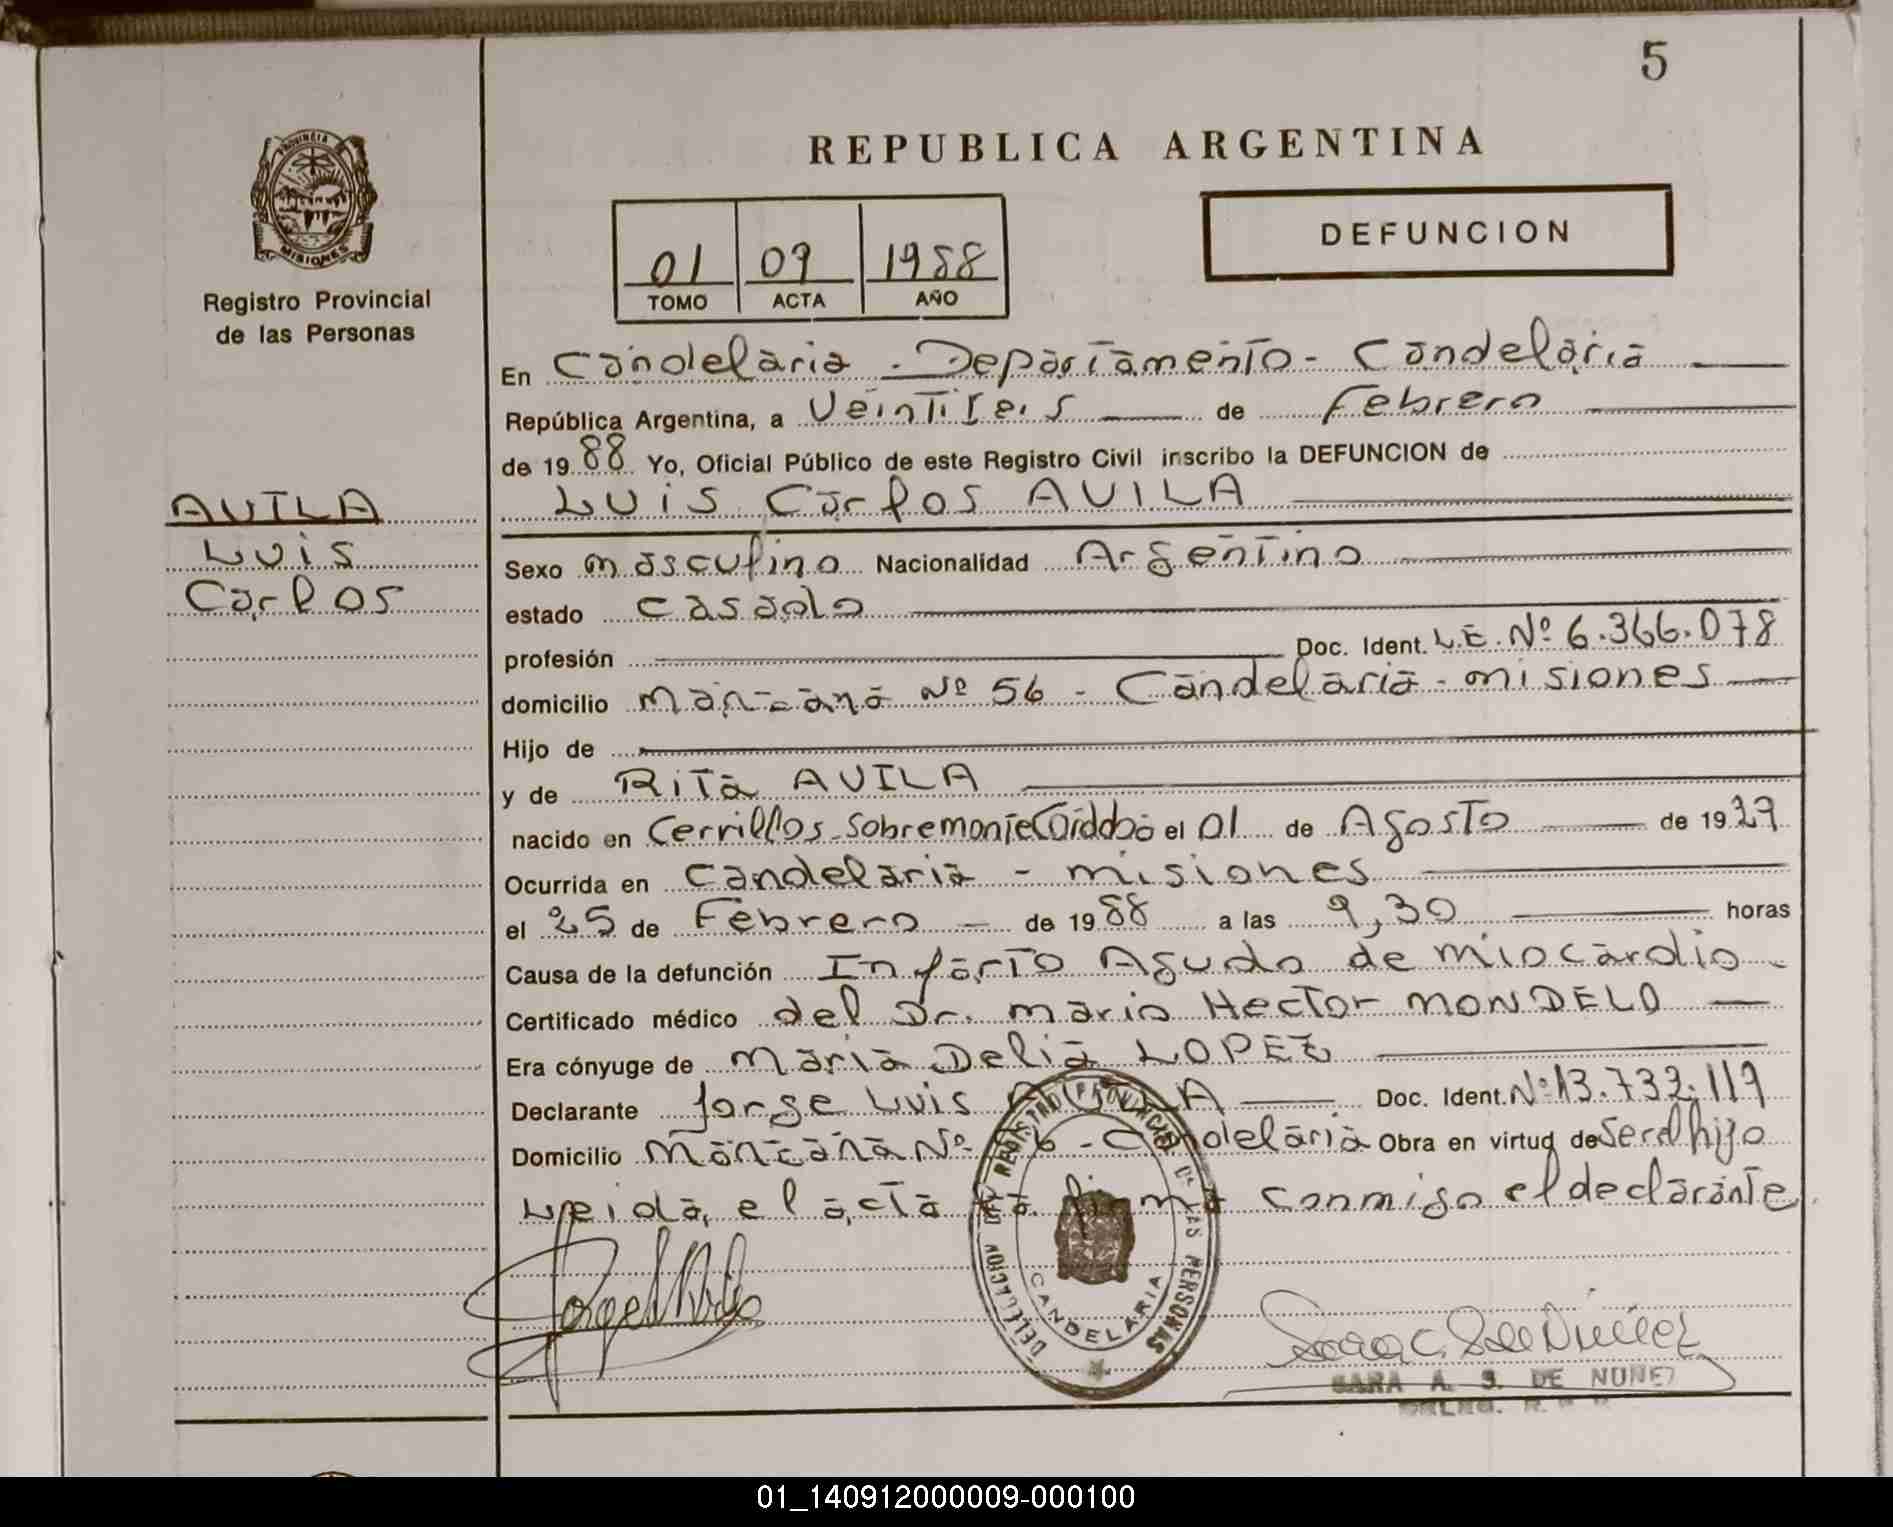 5
PROVINCIA
MISIONES
Registro Provincial
de las Personas
REPUBLICA ARGENTINA
01 09 1988
TOMO ACTA AÑO
DEFUNCION
En Candelaria - Departamento - Candelaria
República Argentina, a Veintiseis de Febrero
de 1988 Yo, Oficial Público de este Registro Civil inscribo la DEFUNCION de
AVILA
Luis
Carlos
Luis Carlos AVILA
Sexo masculino Nacionalidad Argentino
estado casado
profesión Doc. Ident. L.E. Nº 6.366.078
domicilio Manzana Nº 56 - Candelaria - misiones
Hijo de
y de Rita AVILA
nacido en Cerrillos - Sobremonte Córdoba el 01 de Agosto de 19
Ocurrida en Candelaria - misiones
el 25 de Febrero de 1988 a las 9,30 horas
Causa de la defunción Infarto Agudo de miocardio
Certificado médico del Dr. Mario Hector MONDELO
Era cónyuge de Maria Delia LOPEZ
Declarante Jorge Luis AVILA Doc. Ident. Nº 13.732.119
Domicilio Manzana Nº 56 - Candelaria Obra en virtud de Ser el hijo
Leida el acta la firma conmigo el declarante
DELEGACION DEL REGISTRO PROVINCIAL DE LAS PERSONAS
CANDELARIA
SARA A. S. DE NUÑEZ
01_140912000009-000100